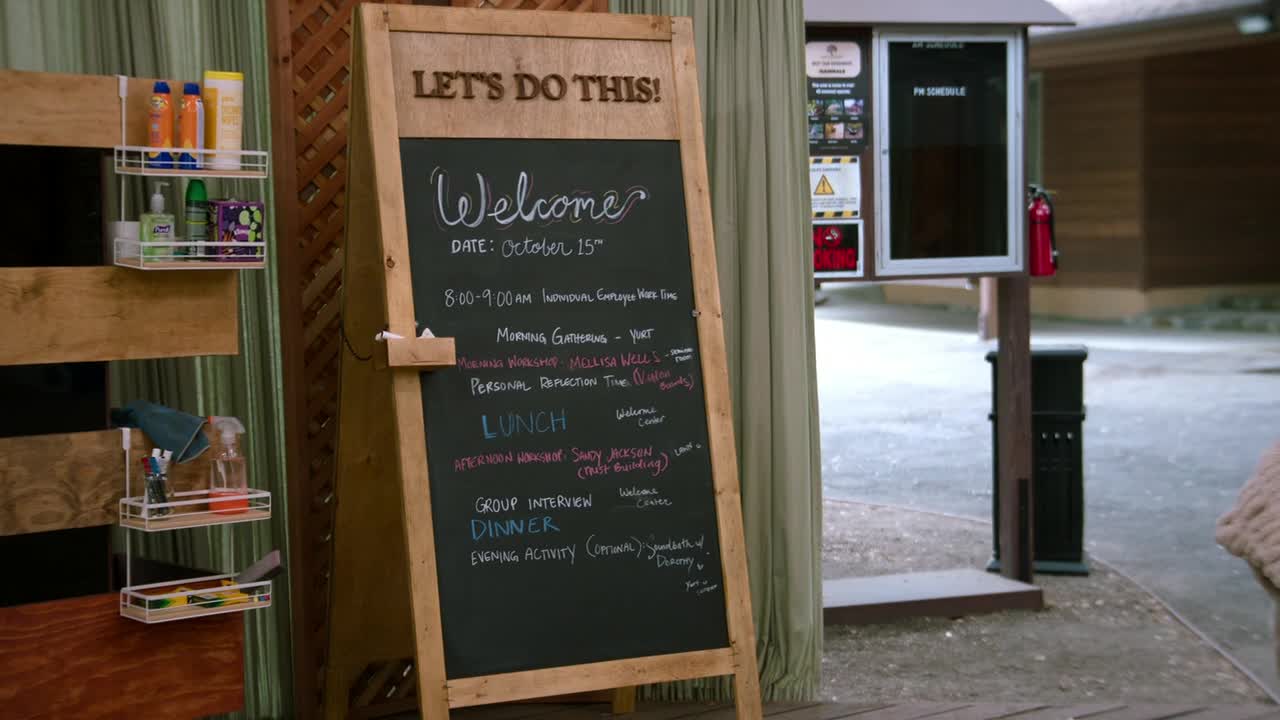 LET'S DO THIS!
Welcome
DATE: October 15TH
8:00-9:00AM INDIVIDUAL EMPLOYEE WORK TIME
MORNING GATHERING - YURT
MORNING WORKSHOP: MELLISA WELLS - SEMINAR ROOM
PERSONAL REFLECTION TIME (Vision Boards)
LUNCH Welcome Center
AFTERNOON WORKSHOP: SANDY JACKSON (Trust Building) LAWN
GROUP INTERVIEW Welcome Center
DINNER
EVENING ACTIVITY (OPTIONAL): Soundbath w/ Dorothy
YURT
AM SCHEDULE
PM SCHEDULE
MAMMALS
NO
SMOKING
Purell